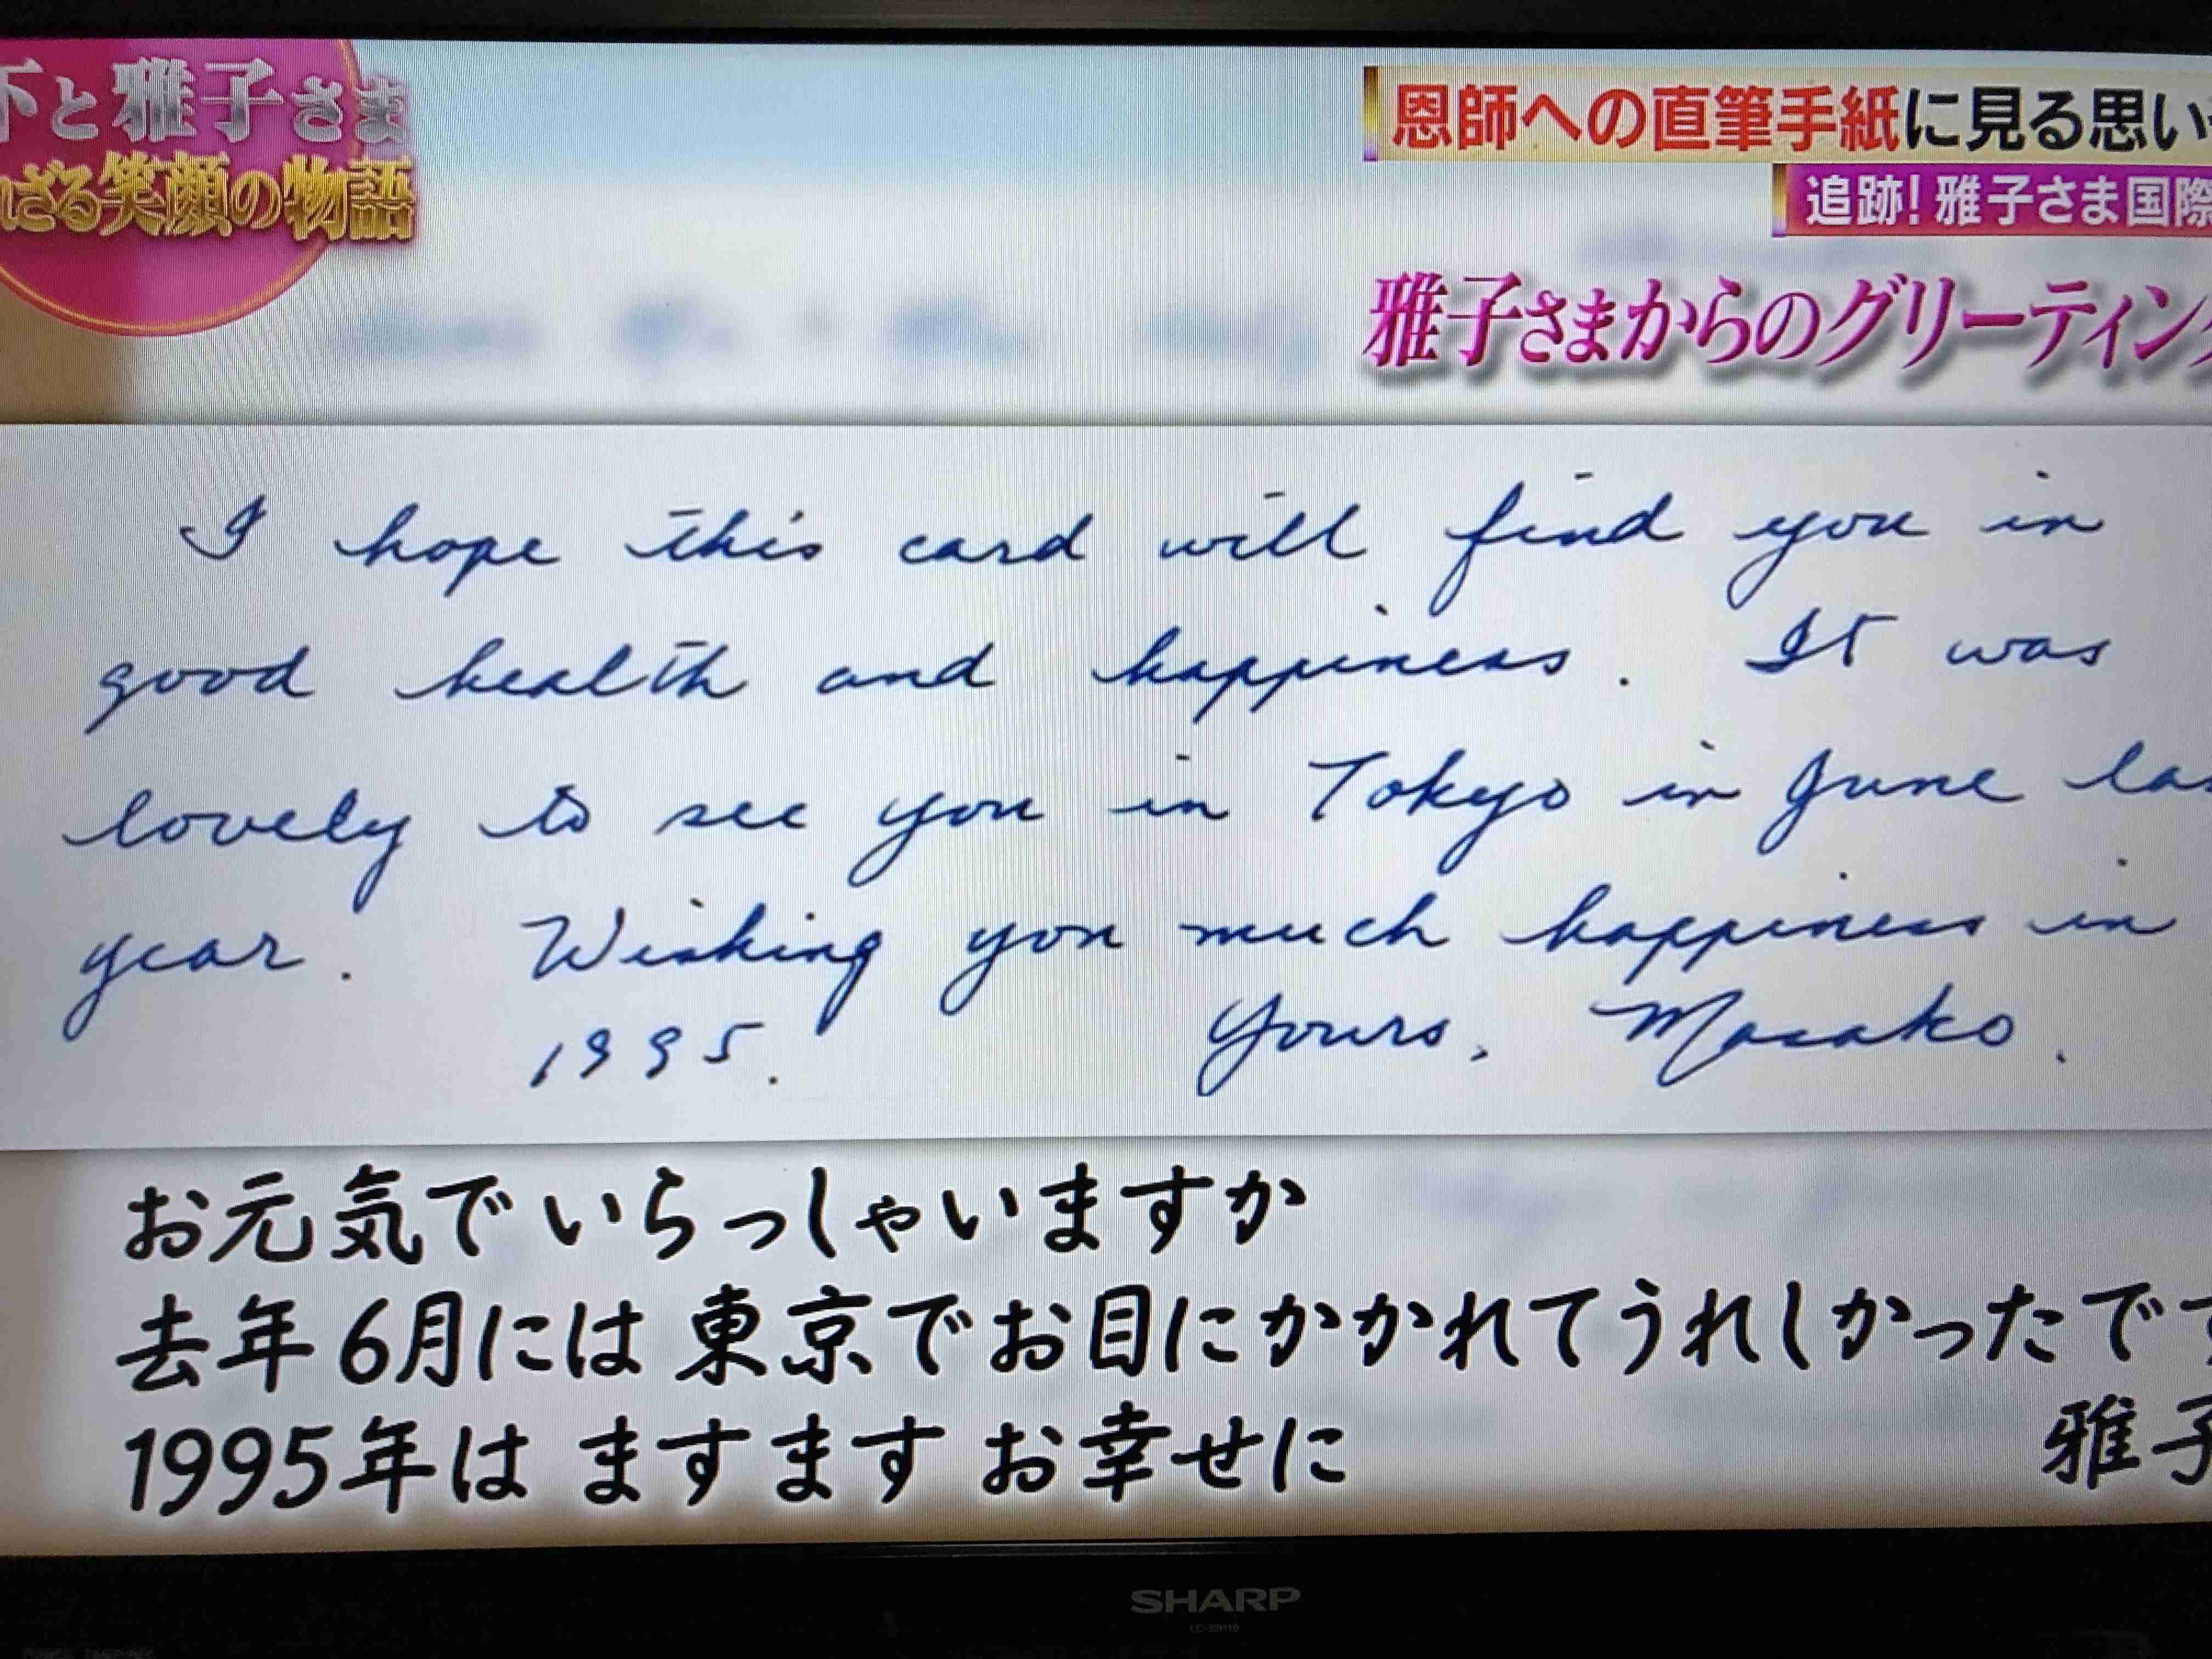 下と雅子さま
れざる笑顔の物語
恩師への直筆手紙に見る思い
追跡！雅子さま国際
雅子さまからのグリーティン
I hope this card will find you in
good health and happiness. It was
lovely to see you in Tokyo in June las
year. Wishing you much happiness in
1995. Yours, Masako.
お元気でいらっしゃいますか
去年6月には 東京でお目にかかれてうれしかったです
1995年は ますます お幸せに
雅子
SHARP
LC-32H10